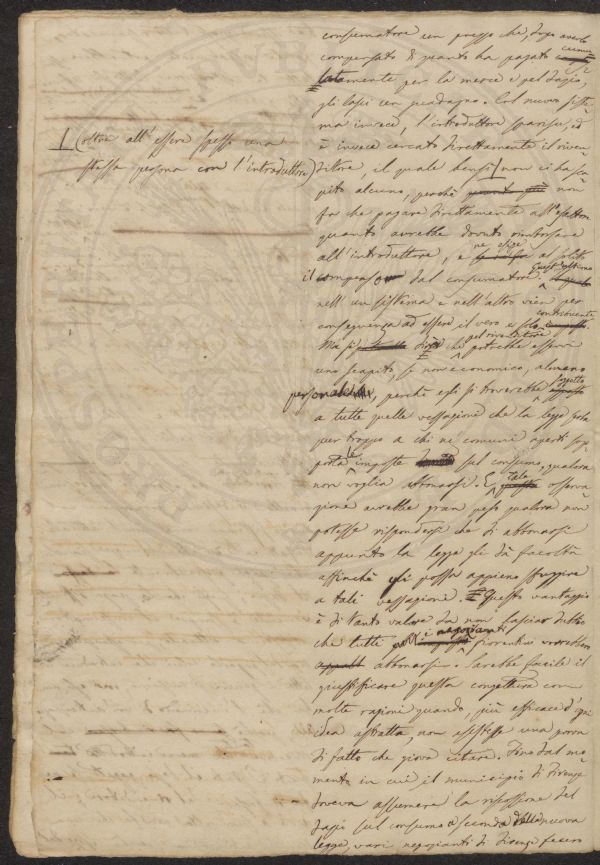 consumatore un prezzo che, dopo averlo
compensato di quanto ha pagato cumu-
latamente per la merce e pel dazio,
gli lasci un guadagno. Col nuovo siste-
ma invece, l'introduttore sparisce, ed
è invece cercato direttamente il riven-
ditore, il quale bensì non ci ha sca-
(oltre all'essere spesso una
stessa persona con l'introduttore)
pito alcuno, perchè non
fa che pagare direttamente all'esattore
quanto avrebbe dovuto rimborsare
all'introduttore, e ne esige al solito
il compenso dal consumatore. Quest'ultimo
nell'un sistema e nell'altro vien per
conseguenza ad essere il vero e solo contribuente.
Ma pel rivenditore potrebbe esservi
uno scapito, se non economico, almeno
personale, perchè egli si troverebbe soggetto
a tutte quelle vessazioni che la legge
pur troppo a chi ne' comuni aperti sop-
porta le imposte sul consumo, qualora
non voglia abbonarsi. E tale osserva-
zione avrebbe gran peso qualora non
potesse rispondersi che di abbonarsi
appunto la legge gli dà facoltà
affinchè egli possa appieno sfuggire
a tali vessazioni. Questo vantaggio
è di tanto valore da non lasciar dubbio
che tutti i negozianti fiorentini vorrebbero
abbonarsi. Sarebbe facile il
giustificare questa congettura con
molte ragioni quando, più efficace d'ogni
idea astratta, non esistesse una prova
di fatto che giova citare. Fino dal mo-
mento in cui il municipio di Firenze
doveva assumere la riscossione del
dazio sul consumo a seconda della nuova
legge, vari negozianti di Firenze fecero